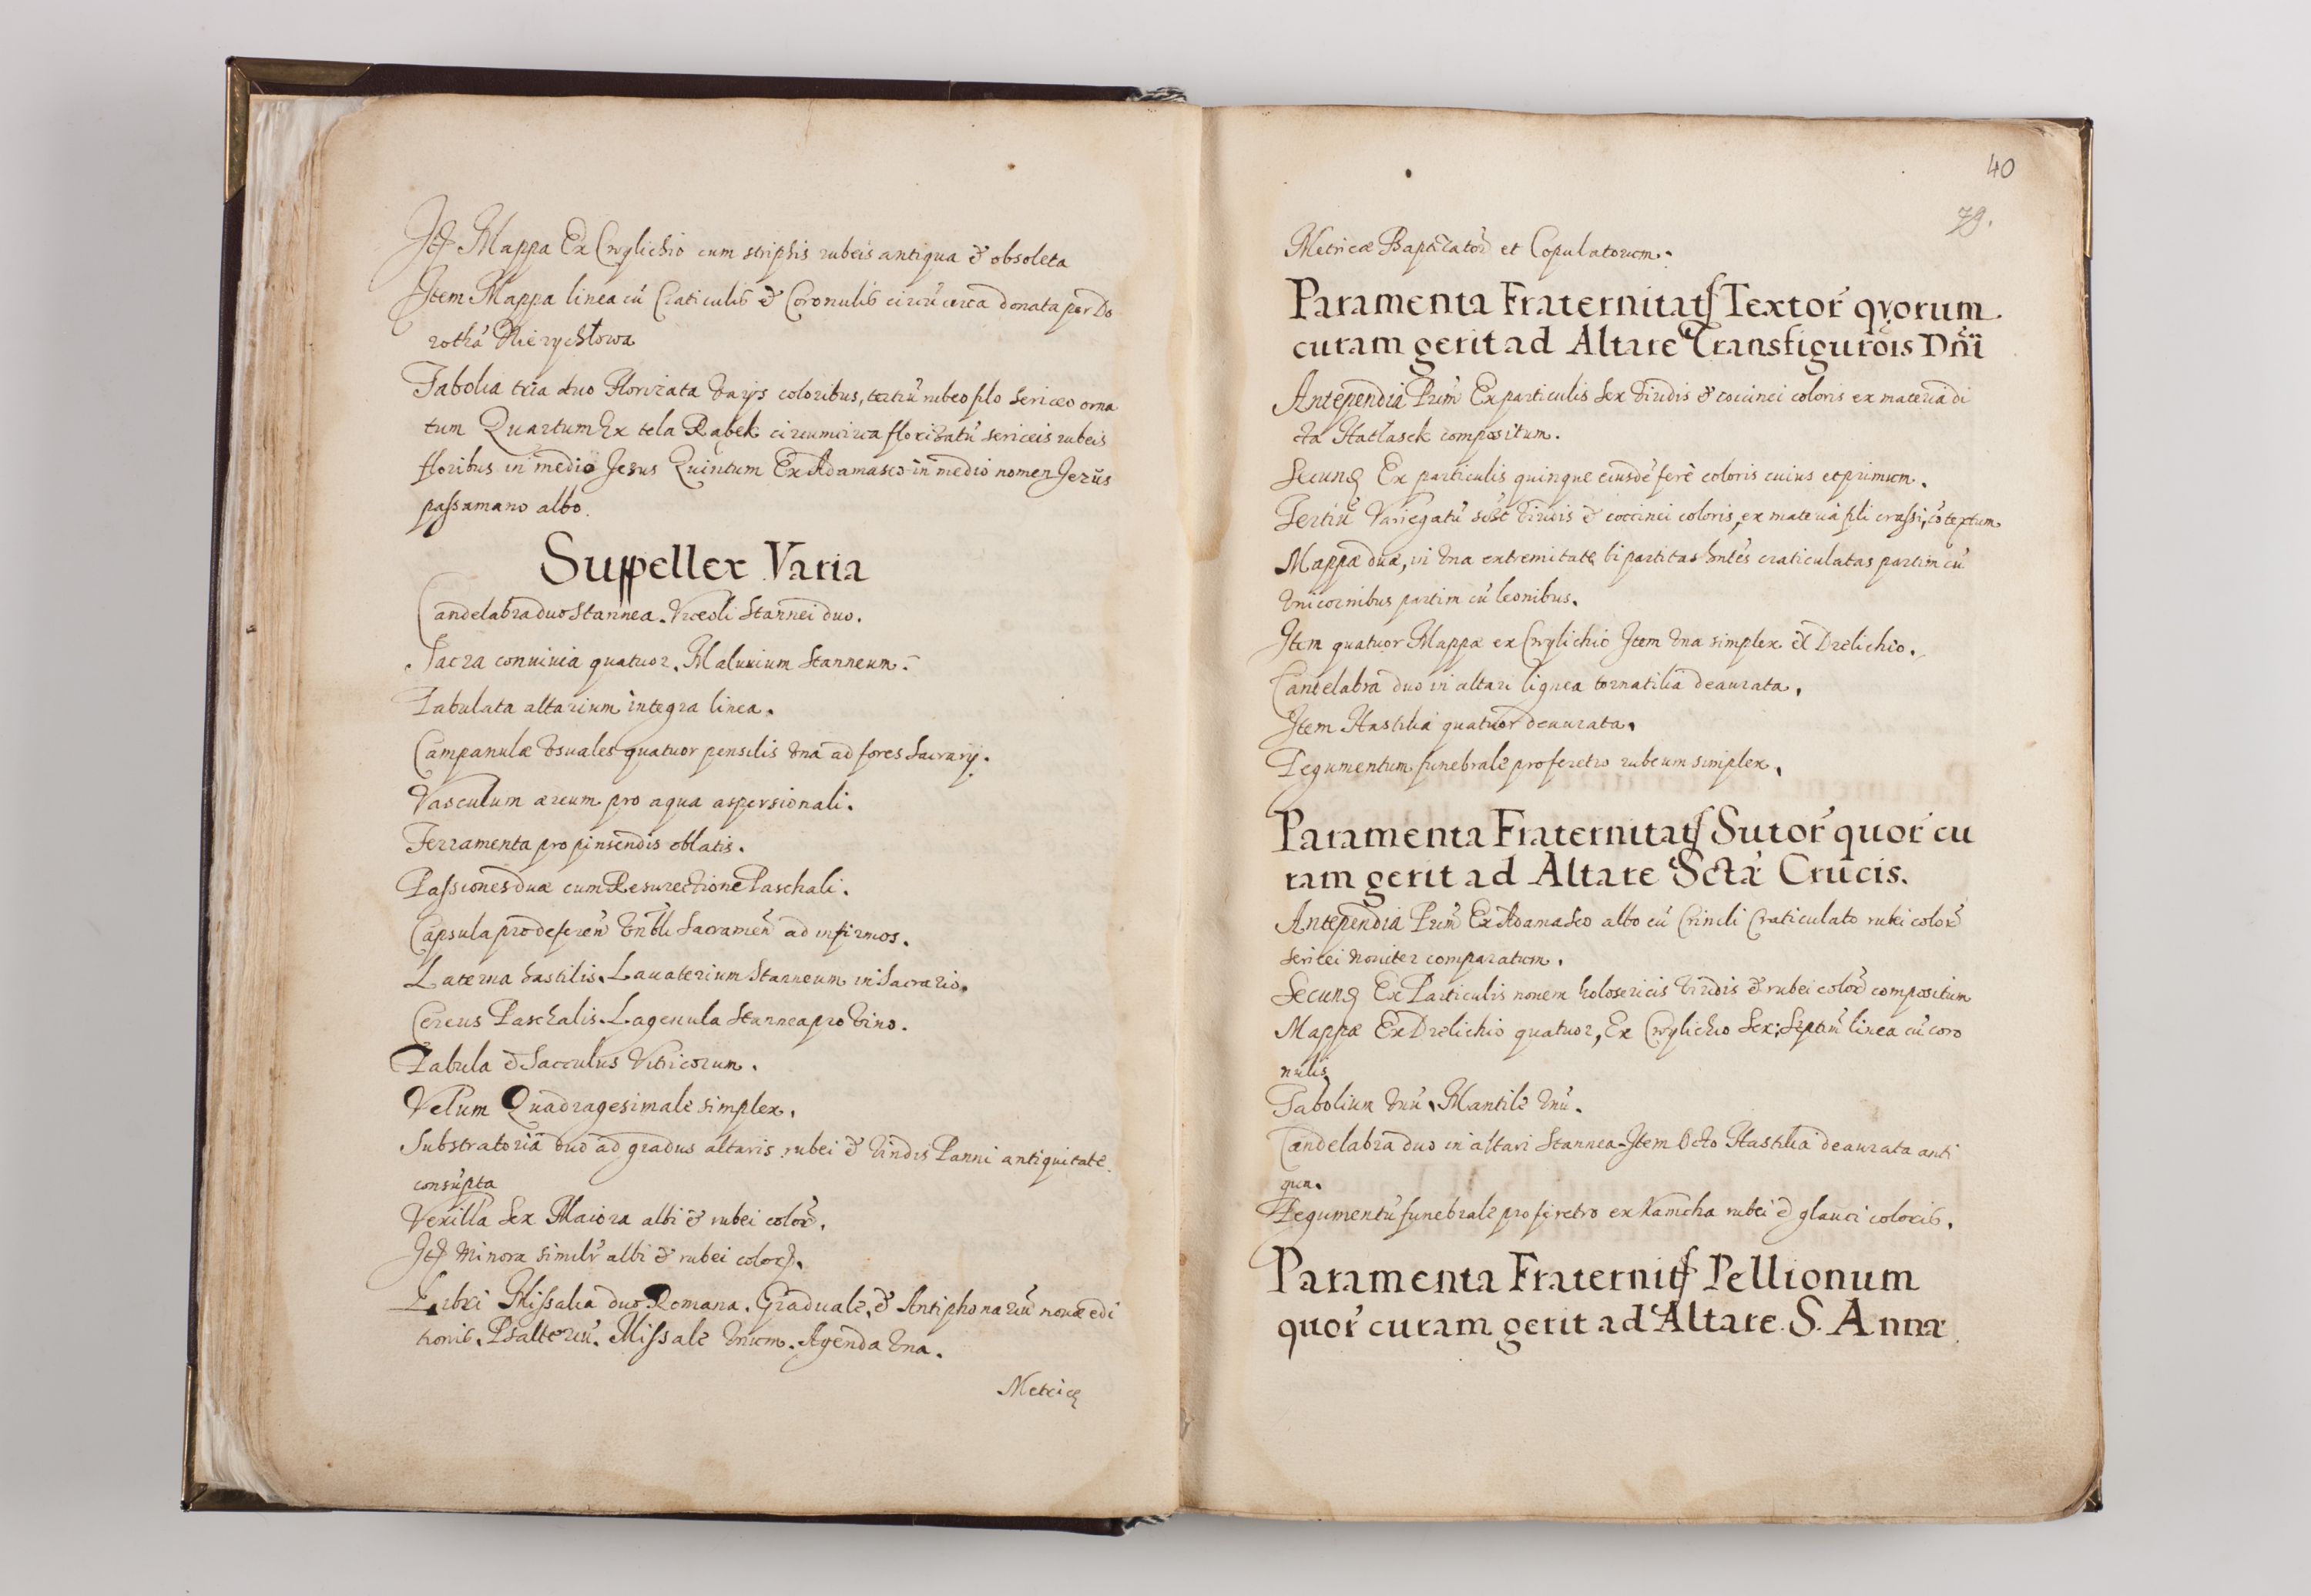 Itt Mappa Ex Cwylichio cum striphis rubeis antiqua & obsoleta
Item Mappa linea cū Craticulis & Coronulis circūcirca donata per Do
rothā
Tabolia tria duo Florizata varijs coloribus, tertiū rubeo filo sericeo orna
tum Quartum Ex tela Rąbek circumcirca floxizatū sericeis rubeis
floribus in medio Jesus Quintum Ex Adamasco in medio nomen Jezus
passamano albo.
Suppellex Varia
Candelabra duo Stannea. Urceoli Stannei duo.
Sacra conuiuia quatuor. Maluuium Stanneum.
Tabulata altarium integra linea.
Campanulæ vsuales quatuor pensilis vna ad fores Sacrarij.
Vasculum æreum pro aqua aspersionali.
Ferramenta pro pinsendis oblatis.
Passiones duæ cum Resurectione Paschali.
Capsula pro deferen̄ Vn̄bli Sacramen̄ ad infirmos.
Laterna hastilis. Lauaterium Stanneum in Sacrario.
Cereus Paschalis. Lagenula Stannea pro Vino.
Tabula & Sacculus Vitricorum.
Velum Quadragesimale simplex.
Substratoria duo ad gradus altaris rubei & viridis Panni antiquitate
consūpta
Vexilla Sex Maiora albi & rubei color̄.
Itt Minora similr̄ albi & rubei color̄.
Libri Missalia duo Romana. Graduale, & Antiphonariū nouæ edi
tionis. Psalteriū. Missale vnum. Agenda vna.
Metricę
40
79.
Metricæ Baptizator̄ et Copulatorum.
Paramenta Fraternitatſ Textor̄ qvorum
curam gerit ad Altare Transfigurōis Dn̄i
Antependia Prim̄ Ex particulis Sex viridis & coccinei coloris ex materia di
cta Hatłasek compositum.
Secunḍ Ex particulis quinque eiusdē ferè coloris cuius et primum.
Tertiū Variegatū sub viridis & coccinei coloris, ex materia fili crassi, cōtextum
Mappæ duæ, in vna extremitate bipartitas hn̄tes craticulatas partim cū
vnicornibus partim cū leonibus.
Item quatuor Mappæ ex Cwylichio Item vna simplex ex Drelichio.
Candelabra duo in altari lignea tornatilia deaurata.
Item Hastilia quatuor deaurata.
Tegumentum funebrale pro feretro rubeum simplex.
Paramenta Fraternitatſ Sutor̄ quor̄ cu
ram gerit ad Altare Sctæ Crucis.
Antependia Prim̄ Ex Adamasco albo cū Crinili Craticulato rubei color̄
sericei nouiter comparatum.
Secunḍ Ex Particulis nouem holosericis viridis & rubei color̄ compositum
Mappæ Ex Drelichio quatuor, Ex Cwylichio Sex, Septim̄ linea cū coro
nulis
Tabolium vnū. Mantile vnū.
Candelabra duo in altari Stannea. Item Octo Hastilia deaurata anti
qua.
Tegumentū funebrale pro feretro ex Kamcha rubei & glauci coloris.
Paramenta Fraternitſ Pellionum
quor̄ curam gerit ad Altare S. Annæ